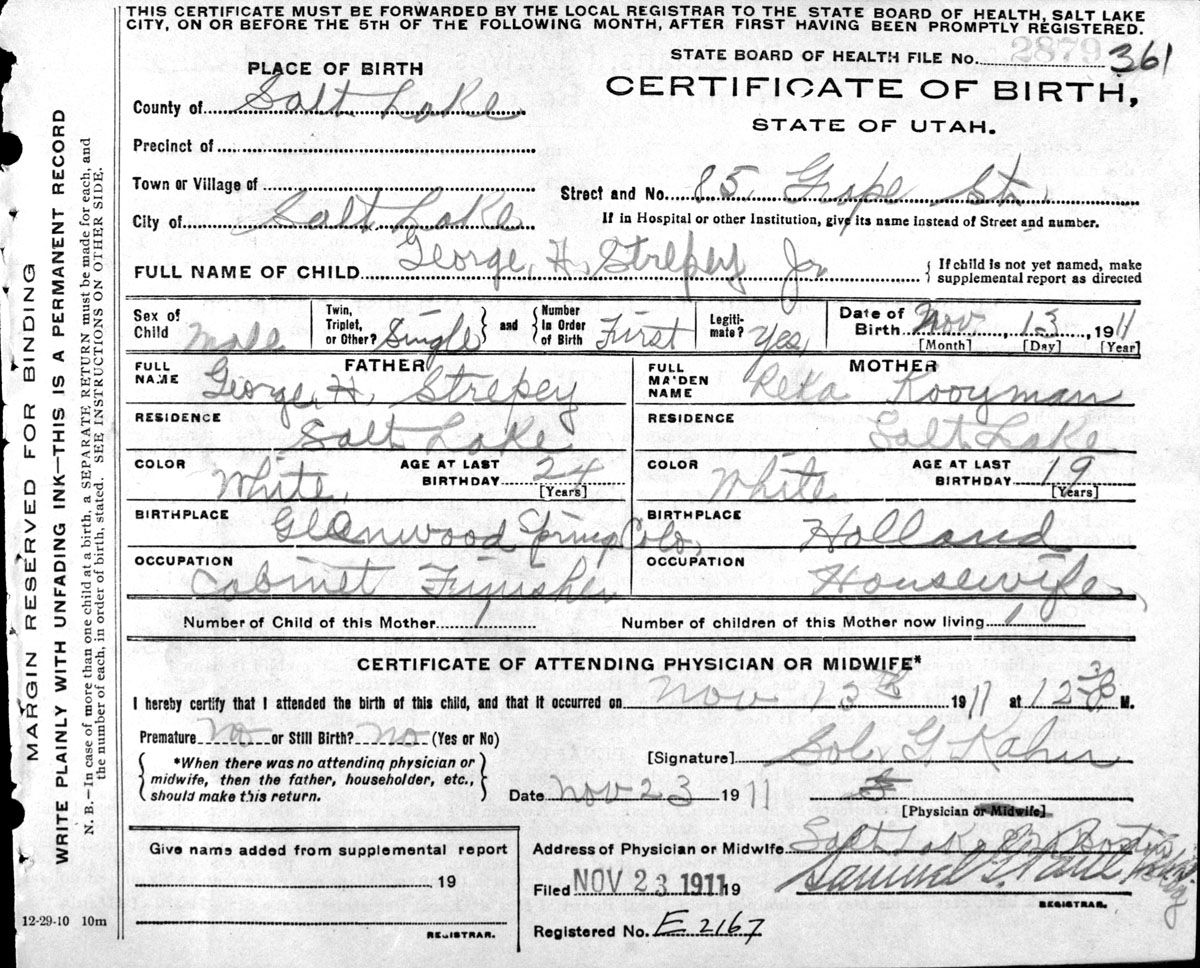 THIS CERTIFICATE MUST BE FORWARDED BY THE LOCAL REGISTRAR TO THE STATE BOARD OF HEALTH, SALT LAKE
CITY, ON OR BEFORE THE 5TH OF THE FOLLOWING MONTH, AFTER FIRST HAVING BEEN PROMPTLY REGISTERED.
STATE BOARD OF HEALTH FILE No. 2879 361
CERTIFICATE OF BIRTH,
STATE OF UTAH.
PLACE OF BIRTH
County of Salt Lake
Precinct of
Town or Village of
Street and No. 85, Grape St.
City of Salt Lake
If in Hospital or other Institution, give its name instead of Street and number.
FULL NAME OF CHILD George, H, Strepey Jr
{ If child is not yet named, make
supplemental report as directed
Sex of Child Male
Twin, Triplet, or Other? Single } and { Number In Order of Birth First
Legiti-mate? Yes,
Date of Birth Nov 13 1911
[Month] [Day] [Year]
FATHER
FULL NAME George, H, Strepey
MOTHER
FULL MAIDEN NAME Reka Kooyman
RESIDENCE Salt Lake
RESIDENCE Salt Lake
COLOR White, AGE AT LAST BIRTHDAY 24 [Years]
COLOR White AGE AT LAST BIRTHDAY 19 [Years]
BIRTHPLACE Glenwood Spring, Colo,
BIRTHPLACE Holland
OCCUPATION Cabinet Finisher
OCCUPATION Housewife,
Number of Child of this Mother 1
Number of children of this Mother now living 1
CERTIFICATE OF ATTENDING PHYSICIAN OR MIDWIFE*
I hereby certify that I attended the birth of this child, and that it occurred on Nov 13th 1911 at 12 30 M.
Premature No or Still Birth? No (Yes or No)
[Signature] Sol. G. Kahn
{ *When there was no attending physician or
midwife, then the father, householder, etc.,
should make this return. }
Date Nov 23 1911
[Physician or Midwife]
Give name added from supplemental report
19
REGISTRAR.
Address of Physician or Midwife Salt Lake
Filed NOV 23 1911 19
Samuel G. Paul
REGISTRAR.
Registered No. E 2167
12-29-10 10m
MARGIN RESERVED FOR BINDING
WRITE PLAINLY WITH UNFADING INK—THIS IS A PERMANENT RECORD
N. B.—In case of more than one child at a birth, a SEPARATE RETURN must be made for each, and
the number of each, in order of birth, stated. SEE INSTRUCTIONS ON OTHER SIDE.